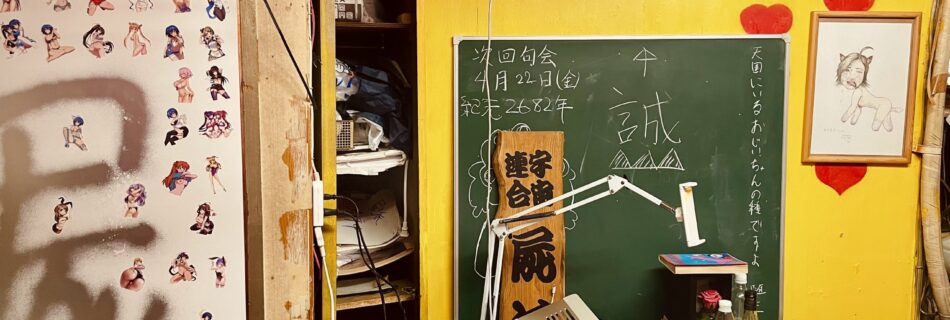 次回句会
4月22日(金)
紀元2682年
誠
天国にいるおじいちゃんの種ですよ
宇宙
連合